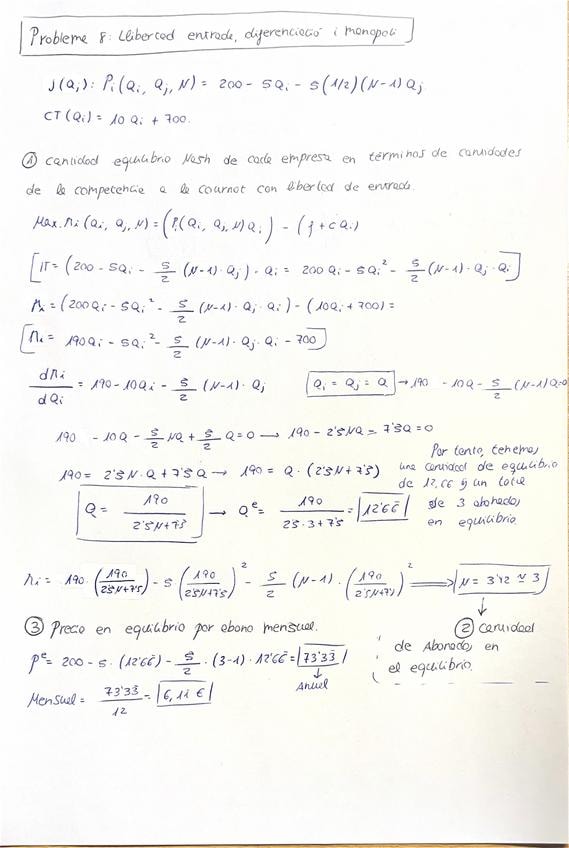 Probleme 8: Lliberted entrade, diferenciació i monopoli
J(Qi): Pi(Qi, Qj, N) = 200 - 5Qi - 5(1/2)(N-1)Qj
CT(Qi) = 10 Qi + 700.
① Cantidad equilibrio Nash de cada empresa en términos de cantidades
de la competencia a la cournot con libertad de entrada.
Max. πi (Qi, Qj, N) = (Pi(Qi, Qj, N)Qi) - (f + cQi)
[IT = (200 - 5Qi - 5/2 (N-1)·Qj)·Qi = 200Qi - 5Qi² - 5/2 (N-1)·Qj·Qi]
πi = (200Qi - 5Qi² - 5/2 (N-1)·Qj·Qi) - (10Qi + 700) =
[πi = 190Qi - 5Qi² - 5/2 (N-1)·Qj·Qi - 700]
dπi/dQi = 190 - 10Qi - 5/2 (N-1)·Qj   Qi = Qj = Q → 190 - 10Q - 5/2 (N-1)Q=0
190 - 10Q - 5/2 NQ + 5/2 Q = 0 → 190 - 2'5NQ = 7'5Q = 0
190 = 2'5N·Q + 7'5Q → 190 = Q·(2'5N + 7'5)
Q = 190/2'5N+7'5 → Qᵉ = 190/2'5·3+7'5 = 12'66
Por tanto, tenemos
una cantidad de equilibrio
de 12,66 y un total
de 3 abonados
en equilibrio.
πi = 190·(190/2'5N+7'5) - 5(190/2'5N+7'5)² - 5/2 (N-1)·(190/2'5N+7'5)² ⟹ N = 3'42 ≃ 3
② Cantidad
de Abonados en
el equilibrio.
③ Precio en equilibrio por abono mensual.
Pᵉ = 200 - 5·(12'66) - 5/2·(3-1)·12'66 = 73'33
↓
Anual
Mensual = 73'33/12 = 6,11 €